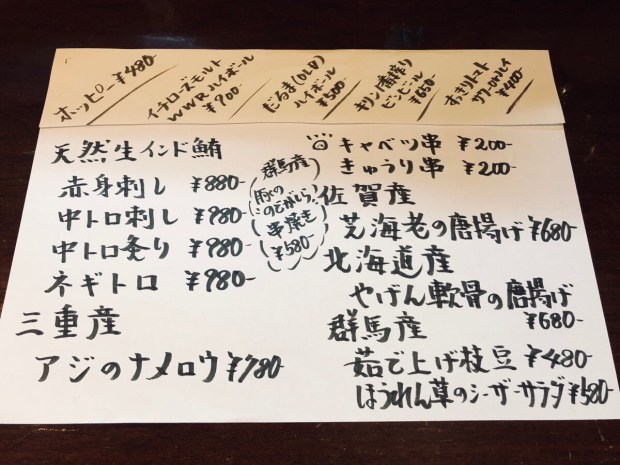 ホッピー ¥480
イチローズモルト
WWRハイボール
¥900
だるま(OLD)
ハイボール
¥500
キリン一番搾り
ビンビール
¥650
すっきりトマト
サワーorハイ
¥400
天然生インド鮪
赤身刺し ¥880-
中トロ刺し ¥980-
中トロ炙り ¥980-
ネギトロ ¥980-
三重産
アジのナメロウ ¥780-
群馬産
豚の
串焼き
¥580
キャベツ串 ¥200-
きゅうり串 ¥200-
佐賀産
芝海老の唐揚げ ¥680
北海道産
やげん軟骨の唐揚げ
¥680-
群馬産
茹で上げ枝豆 ¥480-
ほうれん草のシーザーサラダ ¥580-